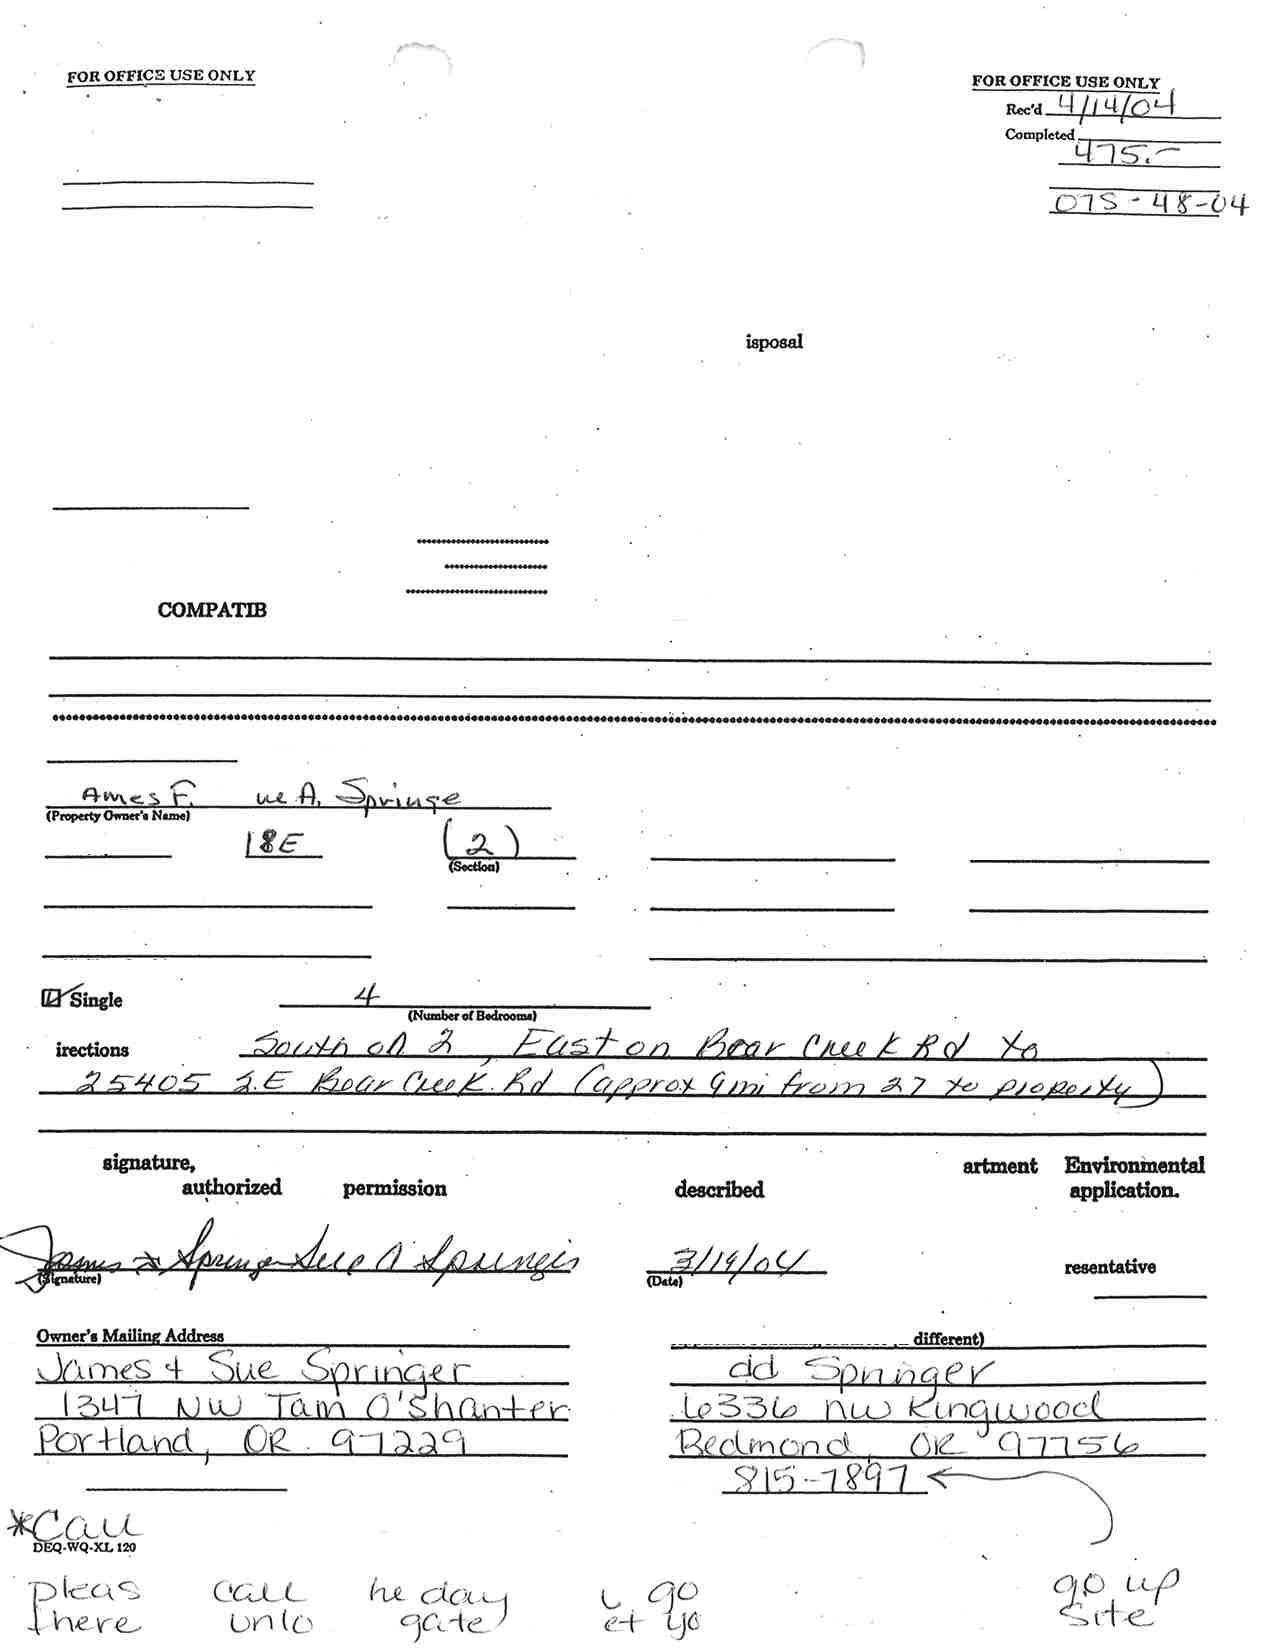 FOR OFFICE USE ONLY
FOR OFFICE USE ONLY
Rec'd 4/14/04
Completed
475.-
075-48-04
isposal
COMPATIB
Ames F. ue A. Springe
(Property Owner's Name)
18E (2)
(Section)
Single 4
(Number of Bedrooms)
irections South on 2 , East on Bear Creek Rd to
25405 S.E Bear Creek Rd (approx 9mi from 27 to property)
signature, artment Environmental
authorized permission described application.
James F Springer Sue A Springer 3/19/04
(Signature) (Date) resentative
Owner's Mailing Address different)
James & Sue Springer dd Springer
1347 NW Tam O'Shanter 6336 NW Kingwood
Portland, OR 97229 Redmond, OR 97756
815-7897
*Call
DEQ-WQ-XL 120
pleas call he day u go go up
there unlo gate et yo site